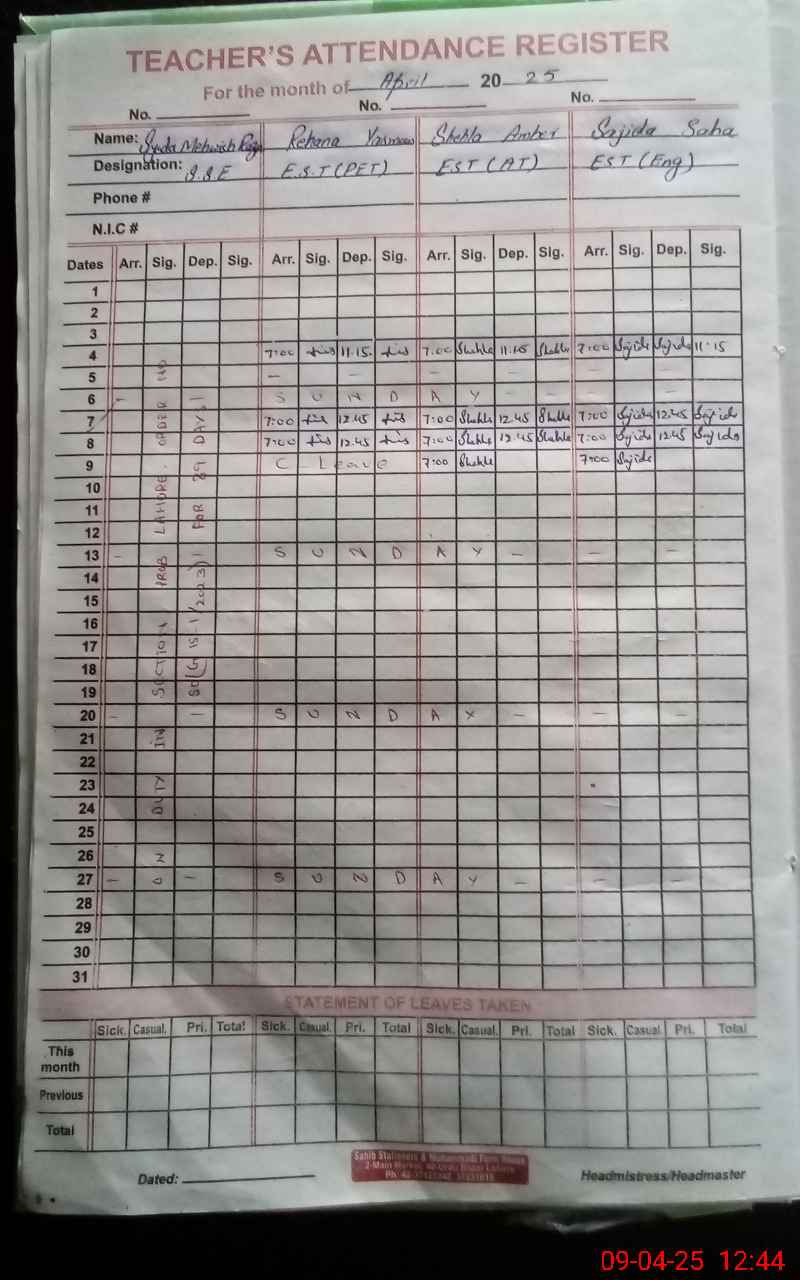 TEACHER'S ATTENDANCE REGISTER
For the month of April 20 25
No. No. No.
Name: Syeda Mehwish Rehana Yasmeen Shehla Amber Sajida Saha
Designation: S.S.E E.S.T (PET) EST (AT) EST (Eng)
Phone #
N.I.C #
Dates Arr. Sig. Dep. Sig. Arr. Sig. Dep. Sig. Arr. Sig. Dep. Sig. Arr. Sig. Dep. Sig.
1
2
3
4 7:00 11.15 7:00 Shehla 11.15 Shehla 7:00 Sajida Sajida 11:15
5 — — — —
6 — S U N D A Y - - - -
7 7:00 12.45 7:00 Shehla 12.45 Shehla 7:00 Sajida 12.45 Sajida
8 7:00 12.45 7:00 Shehla 12.45 Shehla 7:00 Sajida 12.45 Sajida
9 C Leave 7:00 Shehla 7:00 Sajida
10
11
12
13 - S U N D A Y - - -
14
15
16
17
18
19
20 - S U N D A Y - - -
21
22
23
24
25
26
27 - - S U N D A Y - - -
28
29
30
31
ON DUTY IN SECTION LAHORE. ORDER NO
15-1/2023) FOR 89 DAYS
STATEMENT OF LEAVES TAKEN
Sick. Casual. Pri. Total Sick. Casual. Pri. Total Sick. Casual. Pri. Total Sick. Casual. Pri. Total
This month
Previous
Total
Sahib Stationers & Muhammadi Form House
2-Main Market, Urdu Bazar Lahore
Ph: 42
Dated: Headmistress/Headmaster
09-04-25 12:44